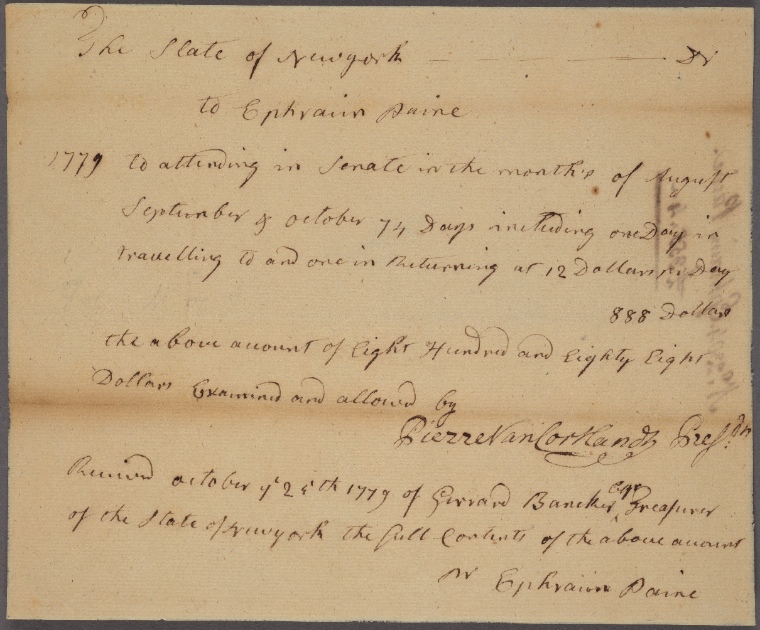 The State of Newyork Dr
to Ephraim Paine
1779 to attending in Senate in the months of August
September & October 74 Days including one Day in
travelling to and one in Returning at 12 Dollars pr Day
888 Dollars
the above account of Eight Hundred and Eighty Eight
Dollars Examined and allowed by
Pierre Van Cortlandt Presdt
Received october ye 25th 1779 of Gerrard Bancker Esqr Treasurer
of the State of Newyork the full Contents of the above account
pr Ephraim Paine